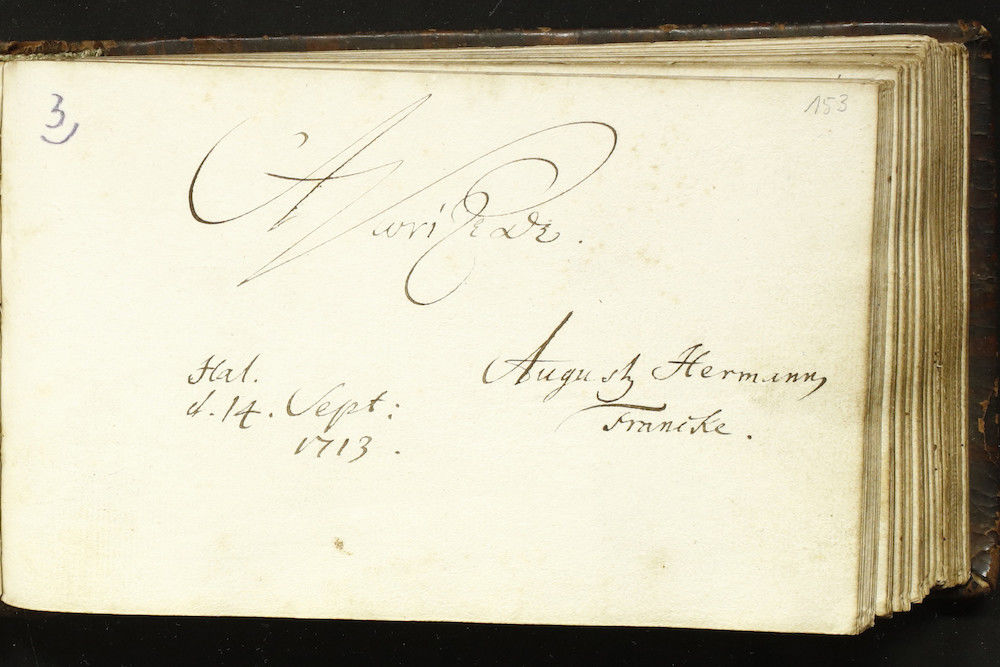 3
153
Hal.
d. 14. Sept:
1713.
August Hermann
Francke.